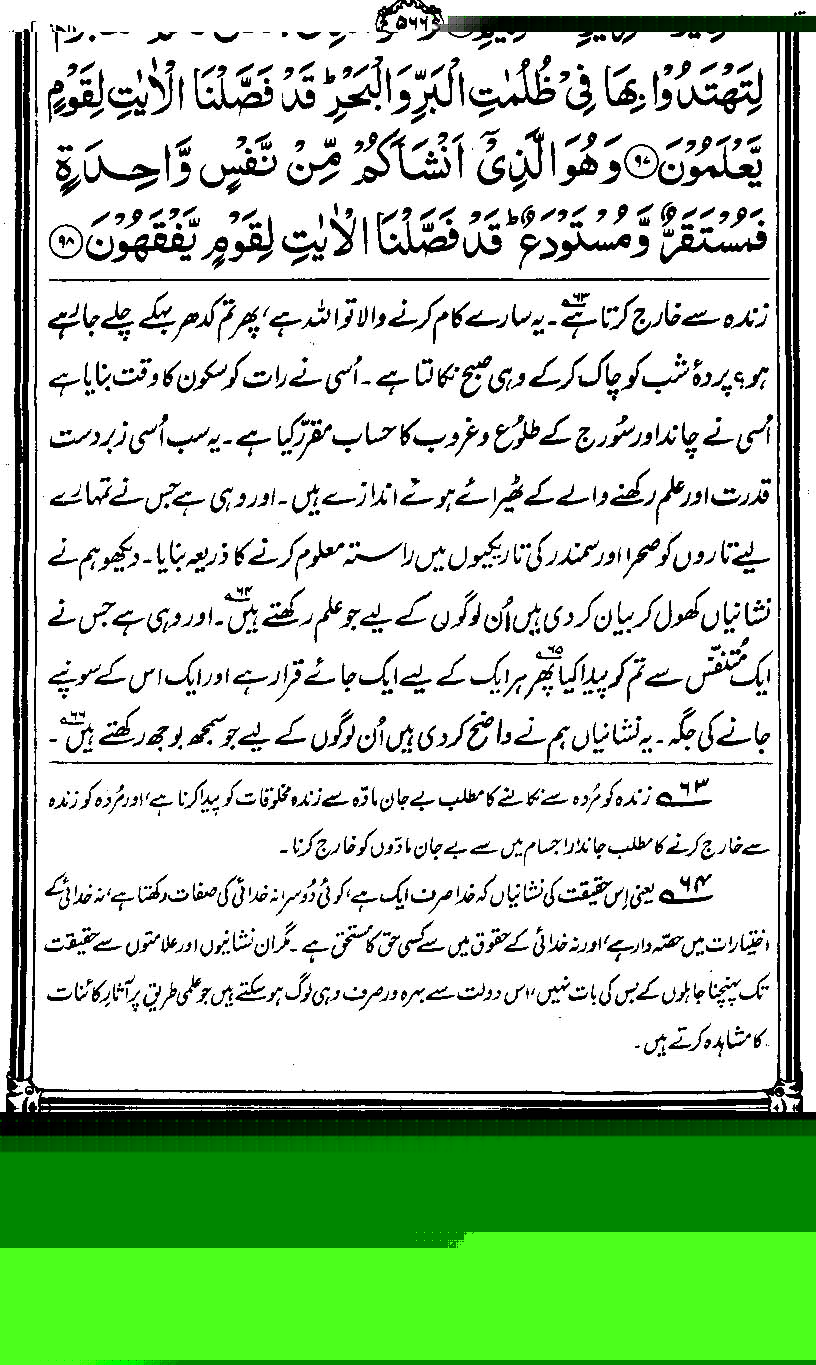 ۵۶۶
لِتَهْتَدُوْا بِهَا فِیْ ظُلُمٰتِ الْبَرِّ وَالْبَحْرِ ؕ قَدْ فَصَّلْنَا الْاٰیٰتِ لِقَوْمٍ
یَّعْلَمُوْنَ ﴿۹۷﴾ وَهُوَ الَّذِیْۤ اَنْشَاَكُمْ مِّنْ نَّفْسٍ وَّاحِدَةٍ
فَمُسْتَقَرٌّ وَّمُسْتَوْدَعٌ ؕ قَدْ فَصَّلْنَا الْاٰیٰتِ لِقَوْمٍ یَّفْقَهُوْنَ ﴿۹۸﴾
زندہ سے خارج کرتا ہے۶۳۔ یہ سارے کام کرنے والا تو اللہ ہے، پھر تم کدھر بہکے چلے جا رہے
ہو؟ پردۂ شب کو چاک کر کے وہی صبح نکالتا ہے۔ اُسی نے رات کو سکون کا وقت بنایا ہے
اُسی نے چاند اور سُورج کے طلوُع و غروب کا حساب مقرّر کیا ہے۔ یہ سب اُسی زبردست
قدرت اور علم رکھنے والے کے ٹھیرائے ہوئے اندازے ہیں۔ اور وہی ہے جس نے تمہارے
لیے تاروں کو صحرا اور سمندر کی تاریکیوں میں راستہ معلوم کرنے کا ذریعہ بنایا۔ دیکھو ہم نے
نشانیاں کھول کر بیان کر دی ہیں اُن لوگوں کے لیے جو علم رکھتے ہیں۶۴۔ اور وہی ہے جس نے
ایک مُتنفّس سے تم کو پیدا کیا۶۵ پھر ہر ایک کے لیے ایک جائے قرار ہے اور ایک اس کے سونپے
جانے کی جگہ۔ یہ نشانیاں ہم نے واضح کر دی ہیں اُن لوگوں کے لیے جو سمجھ بوجھ رکھتے ہیں۶۶۔
۶۳ زندہ کو مُردہ سے نکالنے کا مطلب بے جان مادّہ سے زندہ مخلوقات کو پیدا کرنا ہے، اور مُردہ کو زندہ
سے خارج کرنے کا مطلب جاندار اجسام میں سے بے جان مادّوں کو خارج کرنا۔
۶۴ یعنی اِس حقیقت کی نشانیاں کہ خدا صرف ایک ہے، کوئی دُوسرا نہ خدائی کی صفات رکھتا ہے، نہ خدائی کے
اختیارات میں حصّہ دار ہے، اور نہ خدائی کے حقوق میں سے کسی حق کا مستحق ہے۔ مگر ان نشانیوں اور علامتوں سے حقیقت
تک پہنچنا جاہلوں کے بس کی بات نہیں، اس دولت سے بہرہ ور صرف وہی لوگ ہو سکتے ہیں جو علمی طریق پر آثارِ کائنات
کا مشاہدہ کرتے ہیں۔